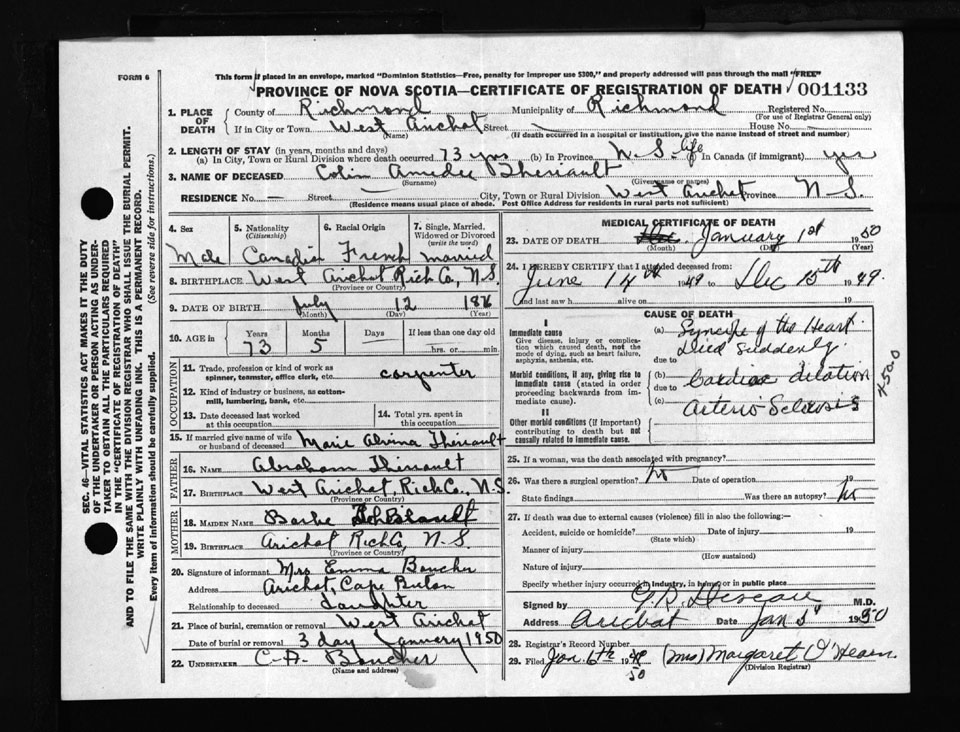 FORM 6
This form if placed in an envelope, marked "Dominion Statistics—Free, penalty for improper use $300," and properly addressed will pass through the mail "FREE"
PROVINCE OF NOVA SCOTIA—CERTIFICATE OF REGISTRATION OF DEATH 001133
1. PLACE OF DEATH
County of Richmond Municipality of Richmond Registered No.
(For use of Registrar General only)
If in City or Town West Arichat Street House No. —
(Name) (If death occurred in a hospital or institution, give the name instead of street and number)
2. LENGTH OF STAY (in years, months and days)
(a) In City, Town or Rural Division where death occurred 73 yrs (b) In Province N.S. life In Canada (if immigrant) yes
3. NAME OF DECEASED Colin Amedee Theriault
(Surname) (Given name or names)
RESIDENCE No. — Street City, Town or Rural Division West Arichat Province N.S.
(Residence means usual place of abode. Post Office Address for residents in rural parts not sufficient)
4. Sex
5. Nationality (Citizenship)
6. Racial Origin
7. Single, Married, Widowed or Divorced (write the word)
Male Canadian French married
8. BIRTHPLACE West Arichat Rich Co, N.S.
(Province or Country)
9. DATE OF BIRTH July 12 1876
(Month) (Day) (Year)
10. AGE in Years Months Days If less than one day old
73 5 hrs. or min.
OCCUPATION
11. Trade, profession or kind of work as spinner, teamster, office clerk, etc. carpenter
12. Kind of industry or business, as cotton-mill, lumbering, bank, etc.
13. Date deceased last worked at this occupation
14. Total yrs. spent in this occupation
15. If married give name of wife or husband of deceased Marie Theriault
FATHER
16. NAME Abraham Theriault
17. BIRTHPLACE West Arichat, Rich Co., N.S.
(Province or Country)
MOTHER
18. MAIDEN NAME
19. BIRTHPLACE Arichat Rich Co N.S.
(Province or Country)
20. Signature of informant Mrs Emma Boucher
Address Arichat, Cape Breton
Relationship to deceased daughter
21. Place of burial, cremation or removal West Arichat
Date of burial or removal 3 day January 1950
22. UNDERTAKER C-A- Boucher
(Name and address)
MEDICAL CERTIFICATE OF DEATH
23. DATE OF DEATH January 1st 1950
(Month) (Day) (Year)
24. I HEREBY CERTIFY that I attended deceased from:
June 14th 1949 to Dec 15th 1949
and last saw h alive on 19
CAUSE OF DEATH
I
Immediate cause
Give disease, injury or complication which caused death, not the mode of dying, such as heart failure, asphyxia, asthenia, etc.
(a) Syncope of the Heart
Died suddenly
due to
Morbid conditions, if any, giving rise to immediate cause (stated in order proceeding backwards from immediate cause).
(b) Cardiac dilation
due to
(c) Arterio Sclerosis
4500
II
Other morbid conditions (if important) contributing to death but not causally related to immediate cause.
25. If a woman, was the death associated with pregnancy?
26. Was there a surgical operation? No Date of operation 19
State findings Was there an autopsy? No
27. If death was due to external causes (violence) fill in also the following:
Accident, suicide or homicide? Date of injury 19
(State which)
Manner of injury
(How sustained)
Nature of injury
Specify whether injury occurred in industry, in home or in public place
Signed by M.D.
Address Arichat Date Jan 1950
28. Registrar's Record Number
29. Filed Jan. 6th 1949 (Mrs) Margaret O'Hearn
50
(Division Registrar)
SEC. 46—VITAL STATISTICS ACT MAKES IT THE DUTY
OF THE UNDERTAKER OR PERSON ACTING AS UNDERTAKER TO OBTAIN ALL THE PARTICULARS REQUIRED
IN THE "CERTIFICATE OF REGISTRATION OF DEATH"
AND TO FILE THE SAME WITH THE DIVISION REGISTRAR WHO SHALL ISSUE THE BURIAL PERMIT.
WRITE PLAINLY WITH UNFADING INK. THIS IS A PERMANENT RECORD.
Every item of information should be carefully supplied. (See reverse side for instructions.)